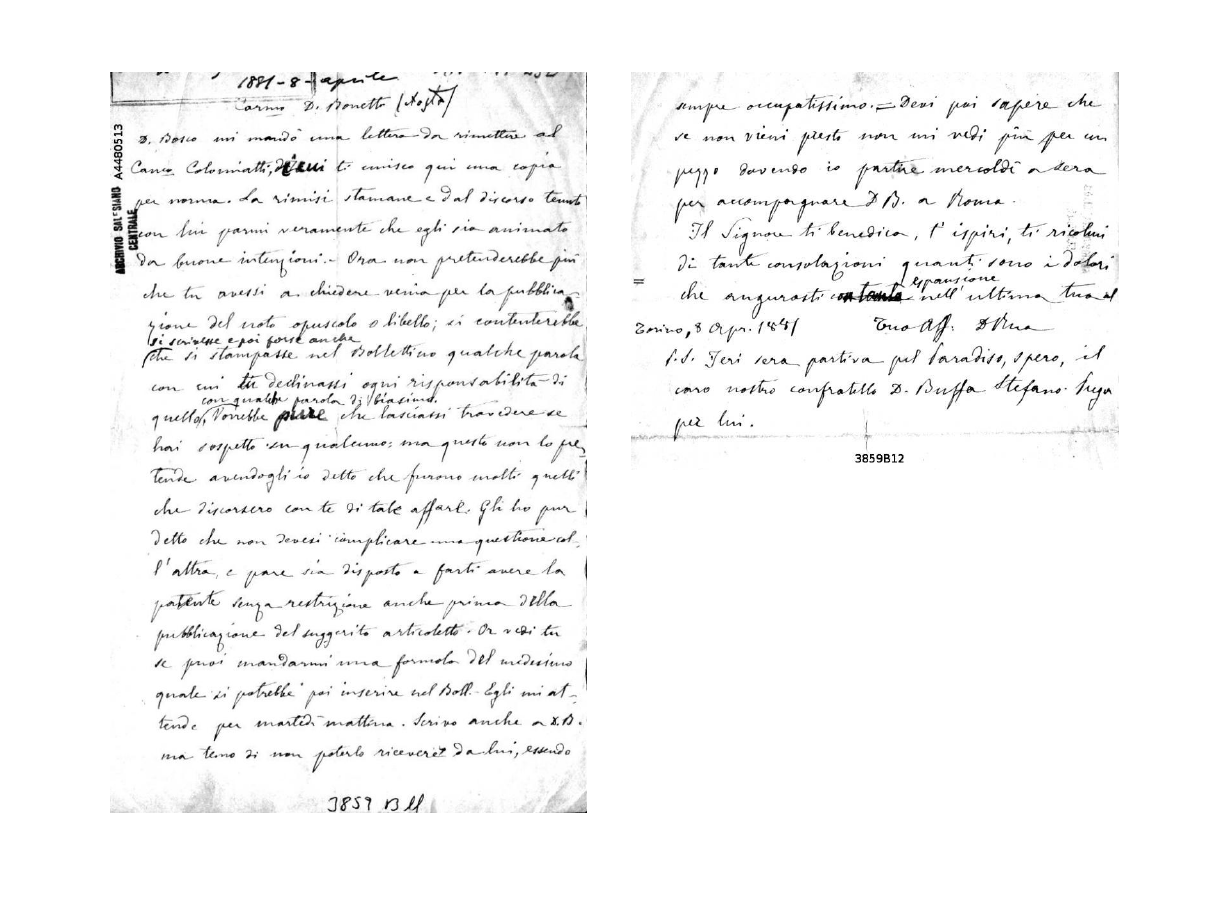 1881-8-aprile
Carmo D. Bonetti (Aosta)
ARCHIVIO SALESIANO
CENTRALE
A4480513
D. Bosco mi mandò una lettera da rimettere al
Canco Colomiatti, di cui ti unisco qui una copia
per norma. La rimisi stamane e dal discorso tenuto
con lui parmi veramente che egli sia animato
da buone intenzioni. - Ora non pretenderebbe più
che tu avessi a chiedere venia per la pubblica-
zione del noto opuscolo o libello; si contenterebbe
si scrivesse e poi forse anche
che si stampasse nel Bollettino qualche parola
con cui tu declinassi ogni responsabilità di
con qualche parola di biasimo.
quello, Vorrebbe pure che lasciassi travedere se
hai sospetto su qualcuno; ma questo non lo pre-
tende avendogli io detto che furono molti quelli
che discorsero con te di tale affare. Gli ho pur
detto che non devesi complicare una questione col-
l'altra, e pare sia disposto a farti avere la
patente senza restrizione anche prima della
pubblicazione del suggerito articoletto. Or vedi tu
se puoi mandarmi una formola del medesimo
quale si potrebbe poi inserire nel Boll. - Egli mi at-
tende per martedì mattina. Scrivo anche a D.B.
ma temo di non poterlo ricevere da lui, essendo
3859 B11
sempre occupatissimo. = Devi poi sapere che
se non vieni presto non mi vedi più per un
pezzo dovendo io partire mercoldì a sera
per accompagnare D B. a Roma.
Il Signore ti benedica, t'ispiri, ti ricolmi
di tante consolazioni quanti sono i dolori
espansione
che angurasti con tanta nell'ultima tua al
Torino, 8 Apr. 1881 Tuo Aff. D Rua
P.S. Jeri sera partiva pel Paradiso, spero, il
caro nostro confratello D. Buffa Stefano. Prega
per lui.
3859B12